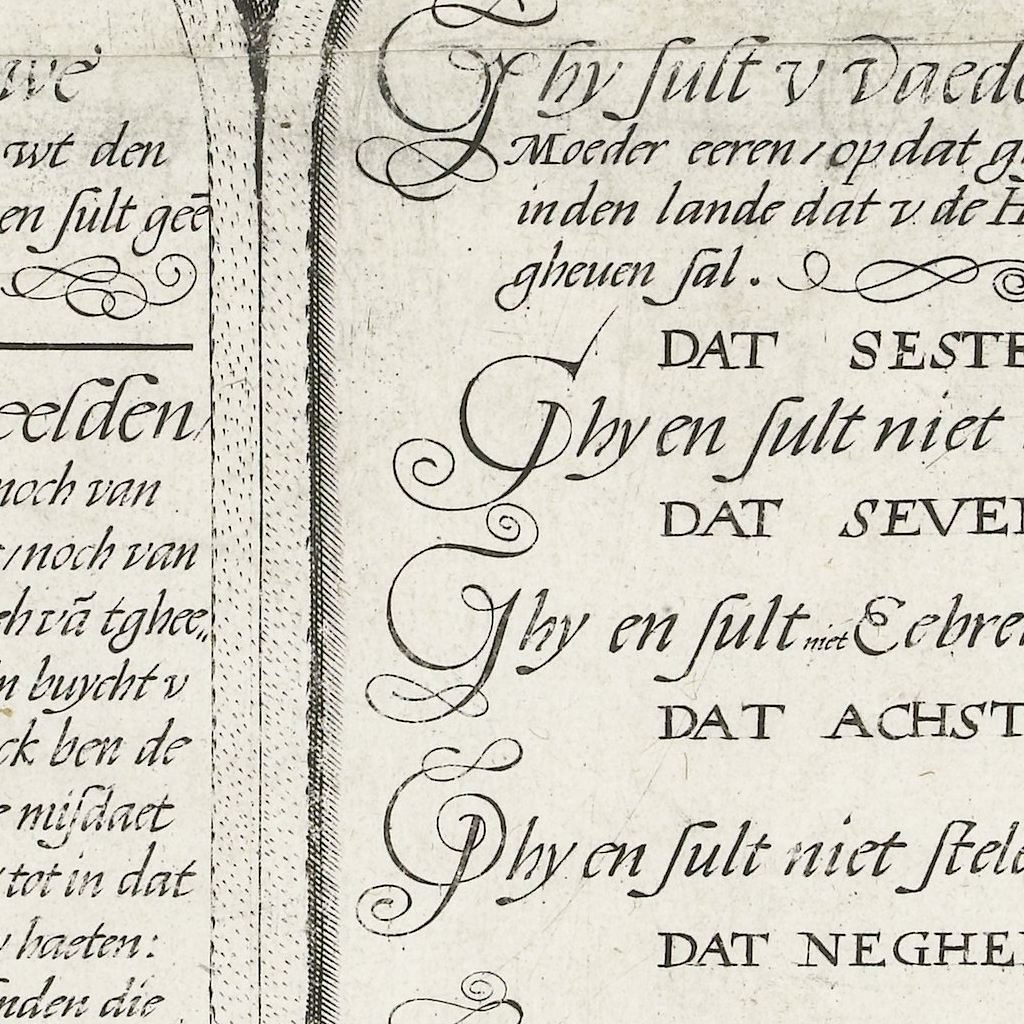 wt den
en sult geē
eelden/
noch van
/noch van
vā tghee„
buycht v
ck ben de
misdaet
tot in dat
haeten:
die
Ghy sult v Vaede
Moeder eeren/op dat
inden lande dat v de
gheuen sal.
DAT SESTE
Ghy en sult niet
DAT SEVE
Ghy en sult niet Eebre
DAT ACHST
Ghy en sult niet stele
DAT NEGHE